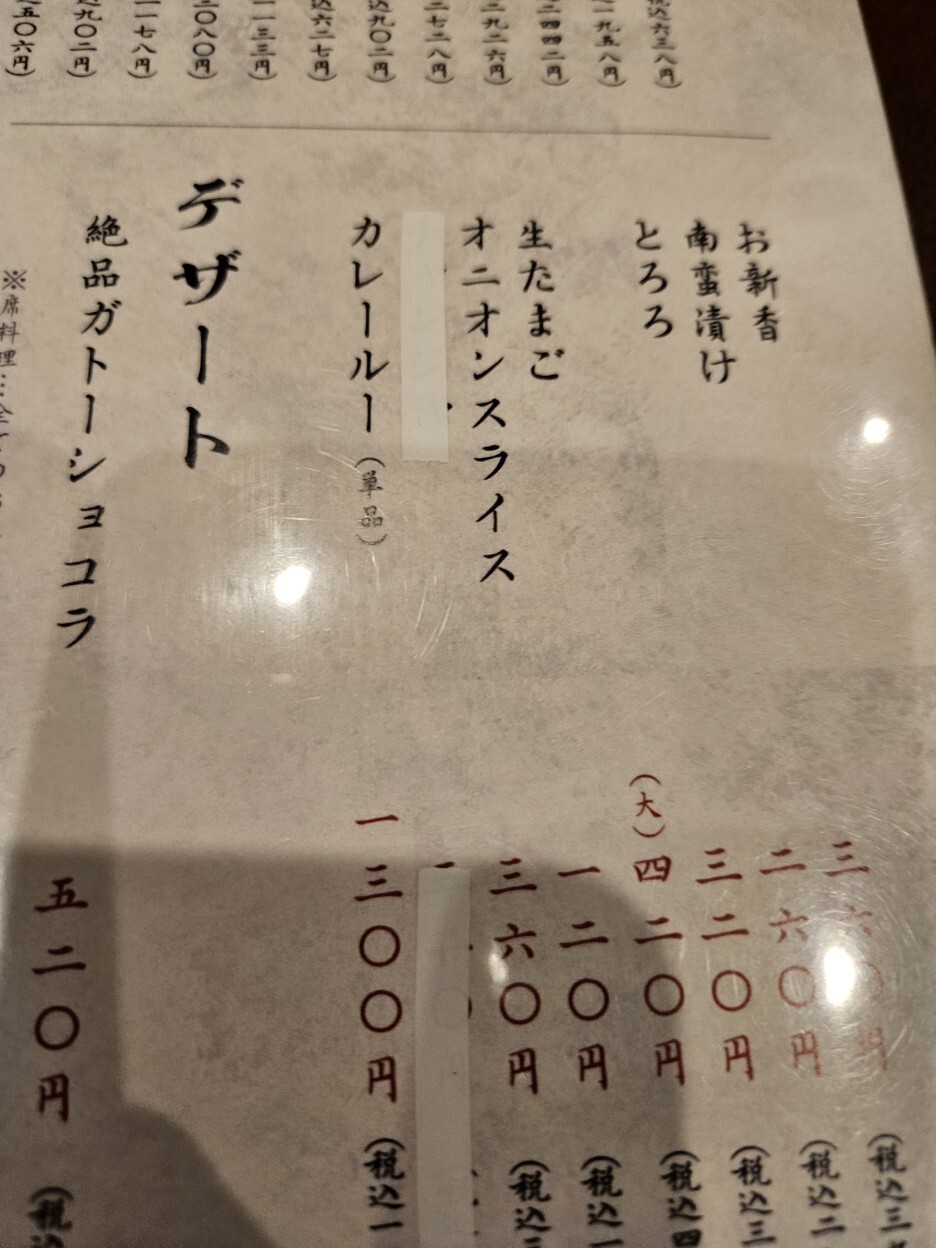 税込六三八円)
一九五八円)
二四四二円)
二九二六円)
二七二八円)
込九〇二円)
込六二七円)
一一三三円)
二〇八〇円)
一一七八円)
込九〇二円)
込五〇六円)
お新香 三六〇円 (税込三
南蛮漬け 二六〇円 (税込二
とろろ 三二〇円 (税込三
(大)四二〇円 (税込四
生たまご 一二〇円 (税込一
オニオンスライス 三六〇円 (税込三
カレールー(単品) 一三〇〇円 (税込一
デザート
絶品ガトーショコラ 五二〇円 (税込
※席料理…全ての